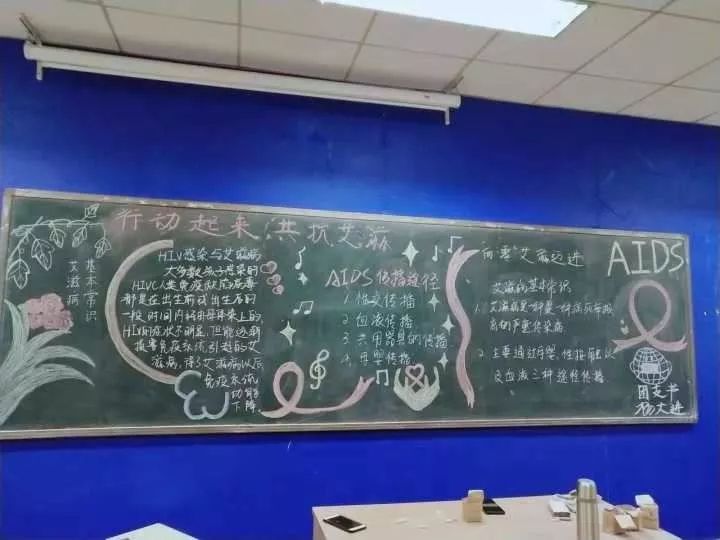 行动起来 共抗艾滋
艾滋病
基本常识
HIV感染与艾滋病
大多数孩子感染的
HIV(人类免疫缺陷病毒
都是在出生前或出生后的
一段时间内
HIV的症状不明显,但能达到
损害免疫系统引起的艾
滋病,得了艾滋病以后,
免疫系统
功能
下降.
AIDS传播途径
1.性交传播
2.血液传播
3.共用器具的传播
4.母婴传播
向"零"艾滋迈进
艾滋病基本常识
1.艾滋病是一种
的严重传染病
2.主要通过母婴,性接触以
及血液三种途径传播
AIDS
团支书